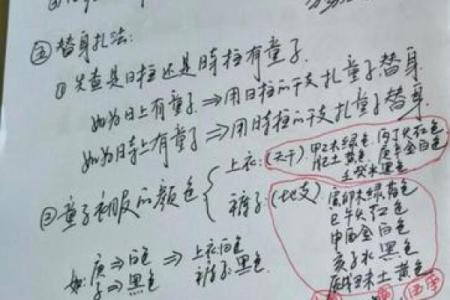 ⑤ 替身扎法:
① 先查是日柱还是时柱有童子
如为日上有童子⇒用日柱的干支扎童子替身
如为时上有童子⇒用时柱的干支扎童子替身.
② 童子衣服的颜色
上衣:(天干): 甲乙木绿色 丙丁火红色
戊己土黄色. 庚辛金白色
壬癸水黑色
裤子:(地支) 寅卯木绿色
巳午火红色
申酉金白色
亥子水黑色
辰戌丑未土黄色
如: 庚⇒白色 ⇒ 上衣白色
子⇒黑色 裤子黑色